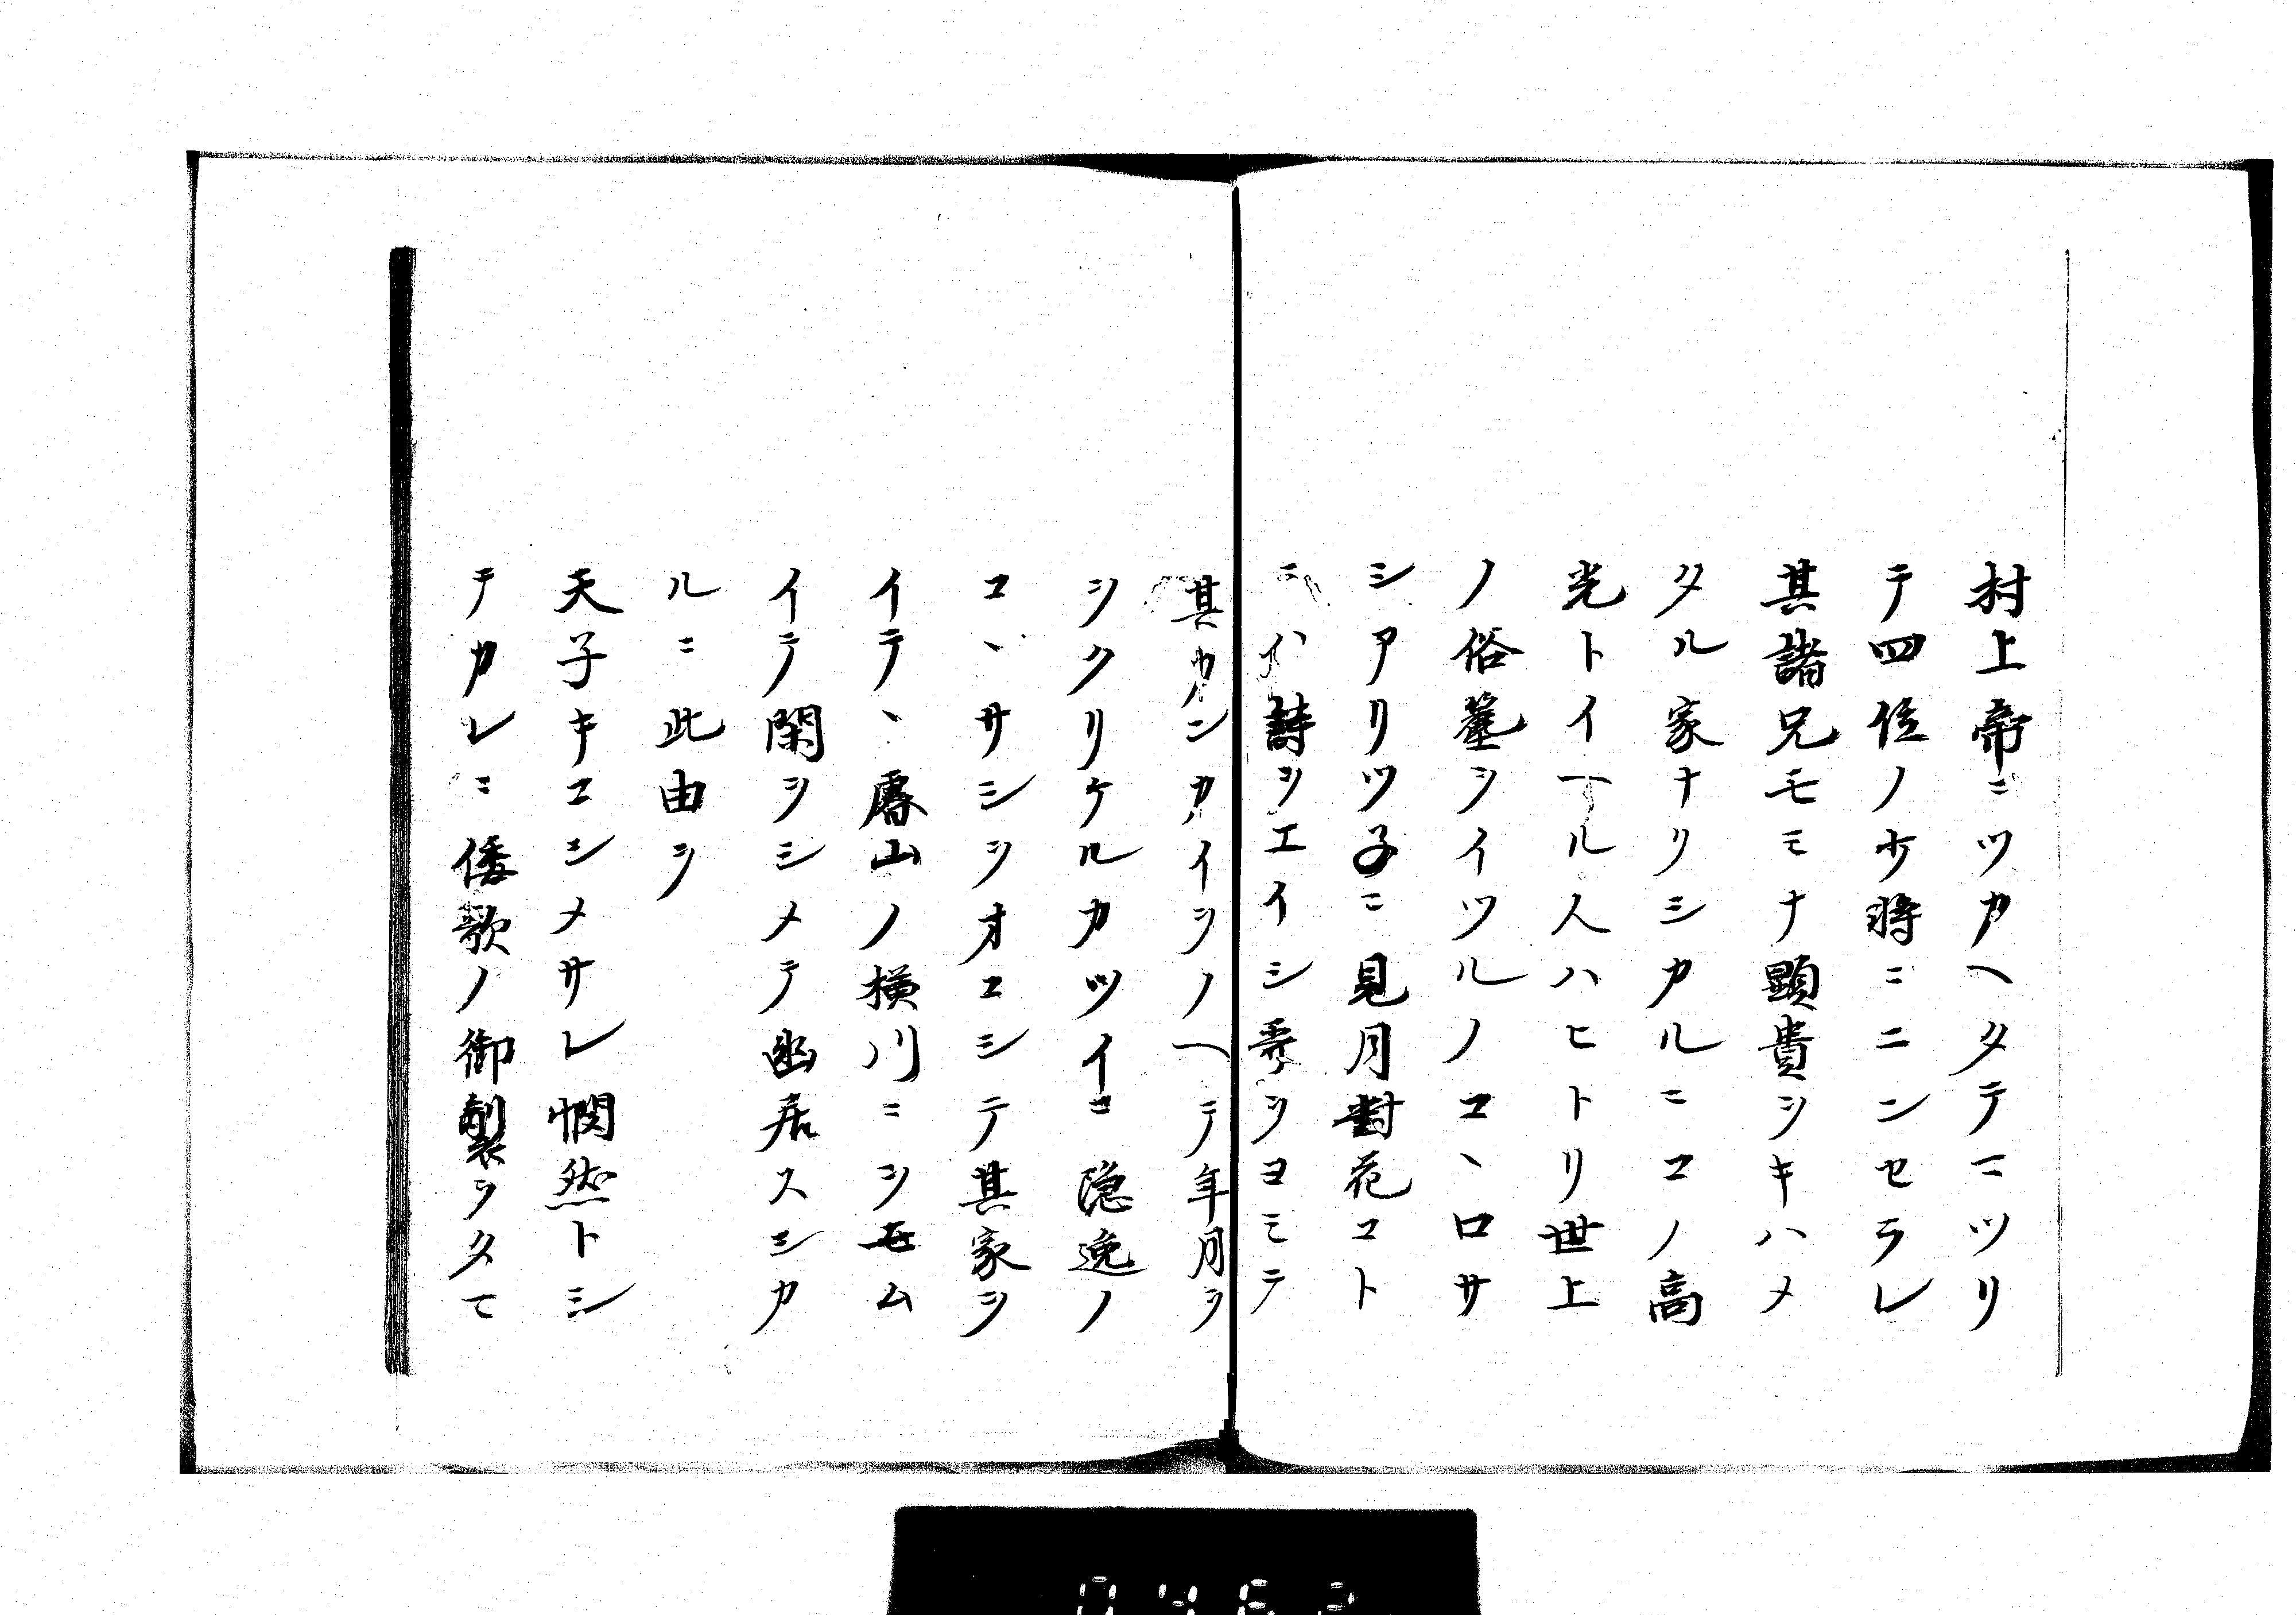 村上帝ニツカヘタテマツリ
テ四位ノ少将ニニンセラレ
其諸兄モミナ顕貴ヲキハメ
タル家ナリシカルニコノ高
光トイヘル人ハヒトリ世上
ノ俗塵ヲイツルノコヽロサ
シアリツ子ニ見月對花コト
ニハ詩ヲエイシ哥ヲヨミテ
其カンカイヲノヘテ年月ヲ
ヲクリケルカツイニ隠逸ノ
コヽサシヲオコシテ其家ヲ
イテヽ睿山ノ横川ニヲモム
イテ閑ヲシメテ幽居スシカ
ルニ此由ヲ
天子キコシメサレ憫然トシ
テカレニ倭歌ノ御製ヲタマ